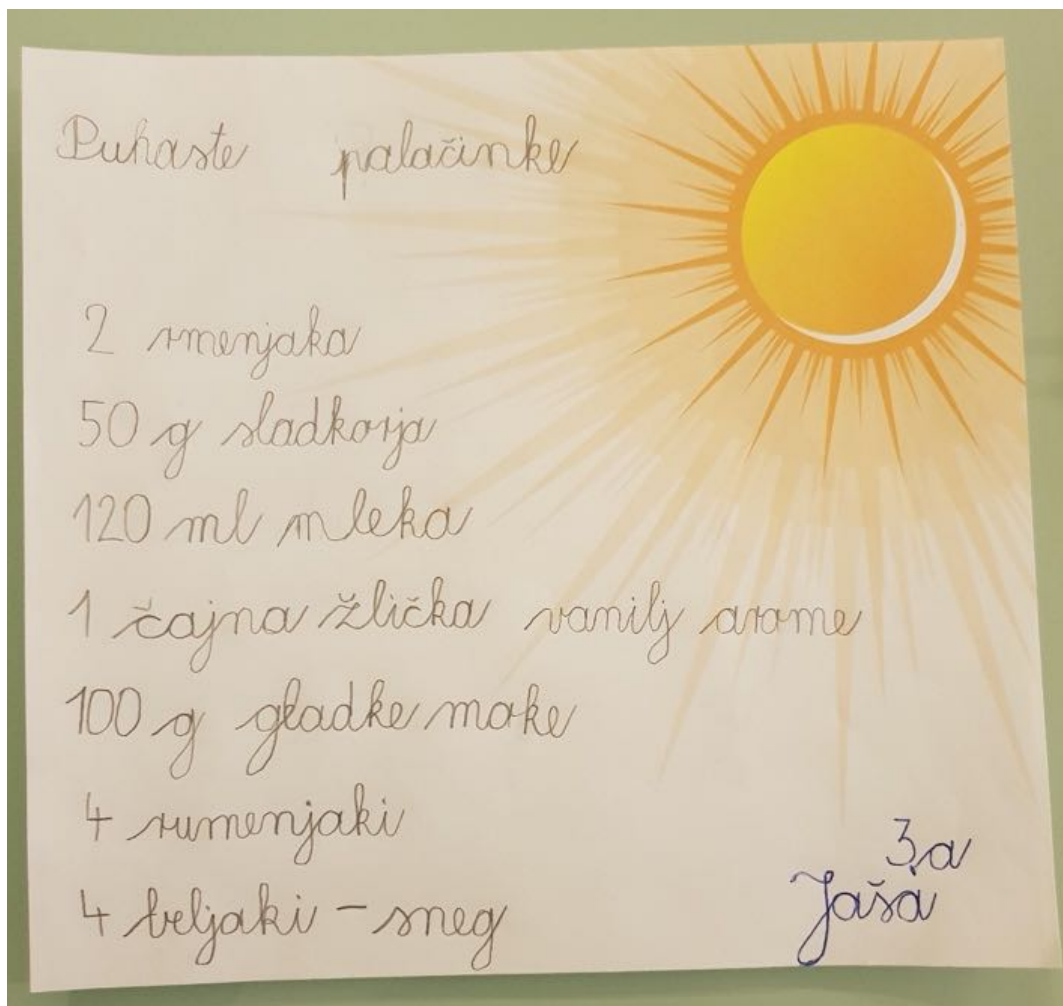 Puhaste palačinke
2 rmenjaka
50 g sladkorja
120 ml mleka
1 čajna žlička vanilj arome
100 g gladke moke
4 rumenjaki
4 beljaki - sneg
3.a
Jaša